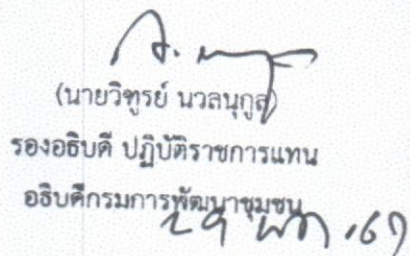 (นายวิฑูรย์ นวลนุกูล)
รองอธิบดี ปฏิบัติราชการแทน
อธิบดีกรมการพัฒนาชุมชน